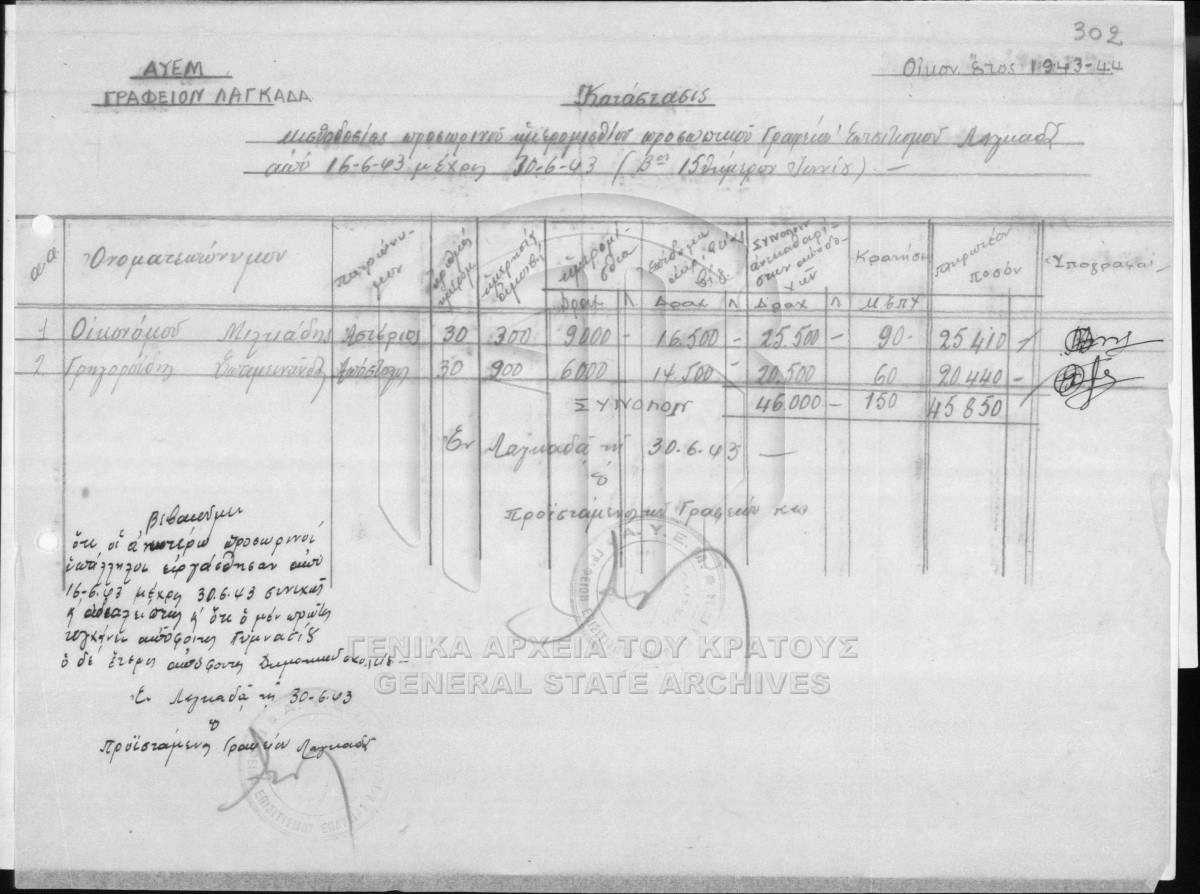 302
ΑΥΕΜ
ΓΡΑΦΕΙΟΝ ΛΑΓΚΑΔΑ
Οἰκον. ἔτος 1943-44
Κατάστασις
μισθοδοσίας προσωρινοῦ ἡμερομισθίου προσωπικοῦ Γραφείου Ἐπισιτισμοῦ Λαγκαδᾶ
ἀπό 16-6-43 μέχρι 30-6-43 (Βον 15θήμερον Ἰουνίου) —
α.α. Ὀνοματεπώνυμον Πατρώνυμον Ἀριθμός ἡμερομ. ἡμερομίσθια Συνολον Κρατήσεις πληρωτέον ποσόν Ὑπογραφαί
Δραχ Λ Δραχ Λ Δραχ Λ Μ.Τ.Π.Υ
1 Οἰκονόμου Μιλτιάδης Ἀστέριος 30 300 9000 - 16.500 - 25.500 - 90- 25410 -
2. Γρηγοριάδης Ἐπαμεινώνδας Ἀπόστολος 30 200 6000 14.500 - 20.500 60 20.440 -
ΣΥΝΟΛΟΝ 46.000 - 150 45850
Ἐν Λαγκαδᾷ τῇ 30.6.43 —
Ὁ
Προϊστάμενος τοῦ Γραφείου
Βεβαιοῦμεν
ὅτι οἱ ἀνωτέρω προσωρινοί
ὑπάλληλοι εἰργάσθησαν ἀπό
16-6-43 μέχρι 30.6.43 συνεχῶς
ὅτι ὁ μέν πρῶτος
τυγχάνει ἀπόφοιτος Γυμνασίου
ὁ δέ ἕτερος ἀπόφοιτος Δημοτικοῦ σχολείου —
Ἐν Λαγκαδᾷ τῇ 30-6-43
Ὁ
Προϊστάμενος Γραφείου Λαγκαδᾶ
ΓΕΝΙΚΑ ΑΡΧΕΙΑ ΤΟΥ ΚΡΑΤΟΥΣ
GENERAL STATE ARCHIVES